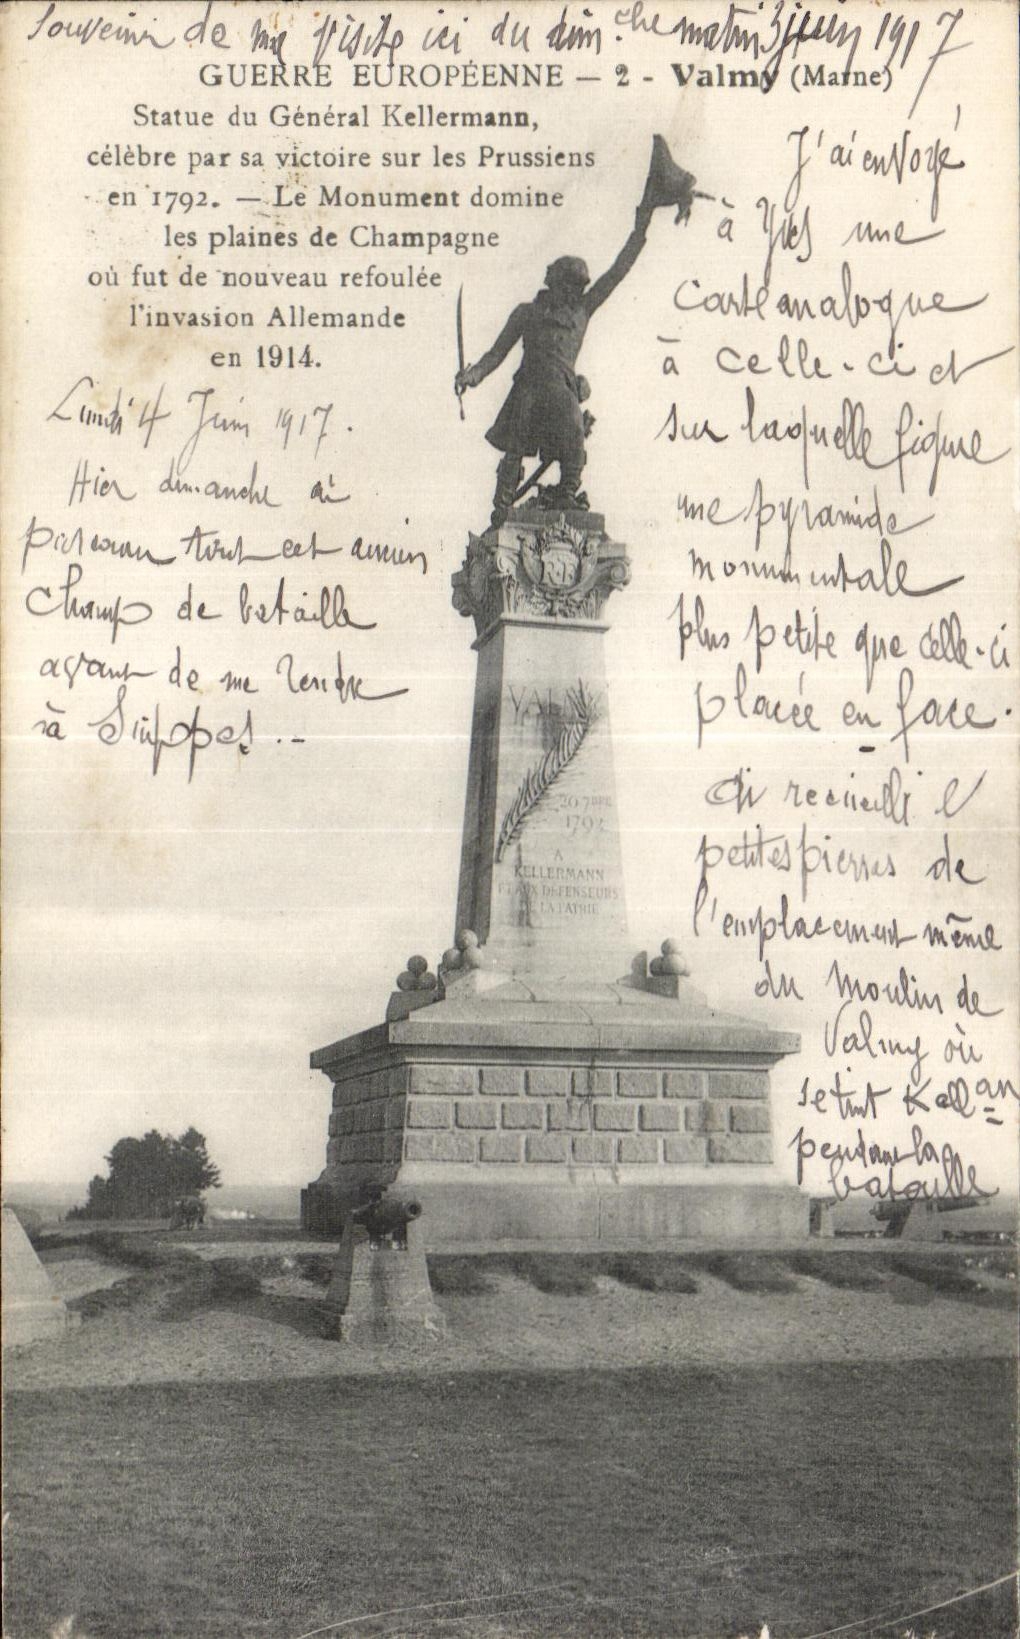 Souvenir de ma visite ici du dim.che matin 3 juin 1917
GUERRE EUROPÉENNE — 2 - Valmy (Marne)
Statue du Général Kellermann,
célèbre par sa victoire sur les Prussiens
en 1792. — Le Monument domine
les plaines de Champagne
où fut de nouveau refoulée
l'invasion Allemande
en 1914.
Lundi 4 Juin 1917.
Hier dimanche ai
parcouru tout cet ancien
champ de bataille
avant de me rendre
à Suippes..
J'ai envoyé
à Yves une
carte analogue
à celle-ci et
sur laquelle figure
une pyramide
monumentale
plus petite que celle-ci
placée en face.
Ai recueilli
petites pierres de
l'emplacement même
du Moulin de
Valmy où
se tint Kell.an
pendant la
bataille
VALMY
20 7BRE
1792
A
KELLERMANN
ET AUX DÉFENSEURS
DE LA PATRIE